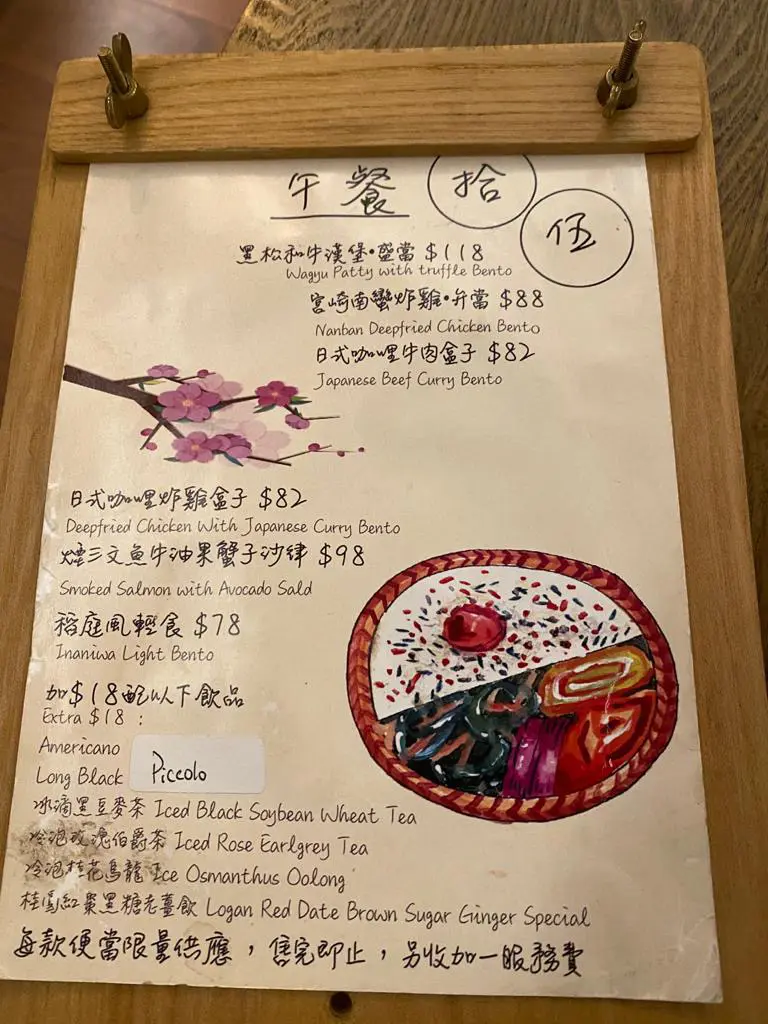 午餐
拾
伍
黑松和牛漢堡•盛當 $118
Wagyu Patty with truffle Bento
宮崎南蠻炸雞•弁當 $88
Nanban Deepfried Chicken Bento
日式咖喱牛肉盒子 $82
Japanese Beef Curry Bento
日式咖喱炸雞盒子 $82
Deepfried Chicken With Japanese Curry Bento
煙三文魚牛油果蟹子沙律 $98
Smoked Salmon with Avocado Sald
稻庭風輕食 $78
Inaniwa Light Bento
加$18配以下飲品
Extra $18 :
Americano
Long Black
Piccolo
冰滴黑豆麥茶 Iced Black Soybean Wheat Tea
冷泡玫瑰伯爵茶 Iced Rose Earlgrey Tea
冷泡桂花烏龍 Ice Osmanthus Oolong
桂圓紅棗黑糖老薑飲 Logan Red Date Brown Sugar Ginger Special
每款便當限量供應，售完即止，另收加一服務費